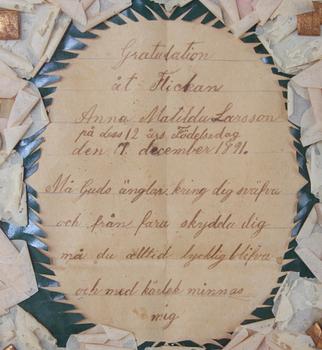 Gratulation
åt Flickan
Anna Matilda Larsson
på dess 12 års Födelsedag
den 17. december 1891.
Må Guds änglar kring dig sväfva
och från fara skydda dig
må du alltid lycklig blifva
och med kärlek minnas
mig